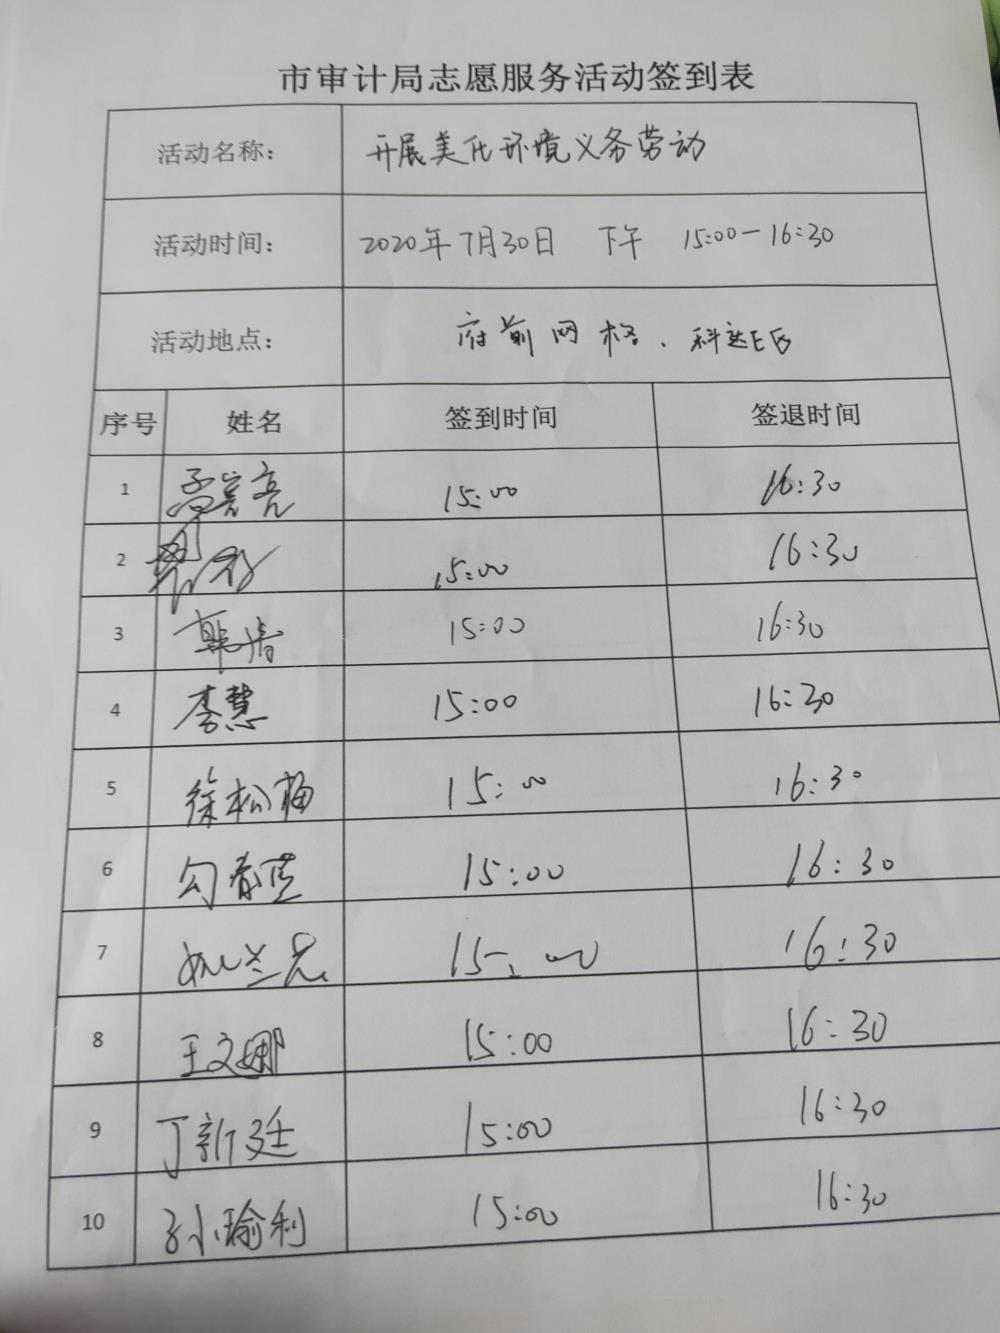 市审计局志愿服务活动签到表
活动名称： 开展美化环境义务劳动
活动时间： 2020年7月30日 下午 15:00-16:30
活动地点： 府前网格、科达E区
序号 姓名 签到时间 签退时间
1 孟宪亮 15:00 16:30
2 15:00 16:30
3 韩清 15:00 16:30
4 李慧 15:00 16:30
5 徐松梅 15:00 16:30
6 15:00 16:30
7 姚兰克 15:00 16:30
8 王文娜 15:00 16:30
9 丁新廷 15:00 16:30
10 孙瑜利 15:00 16:30